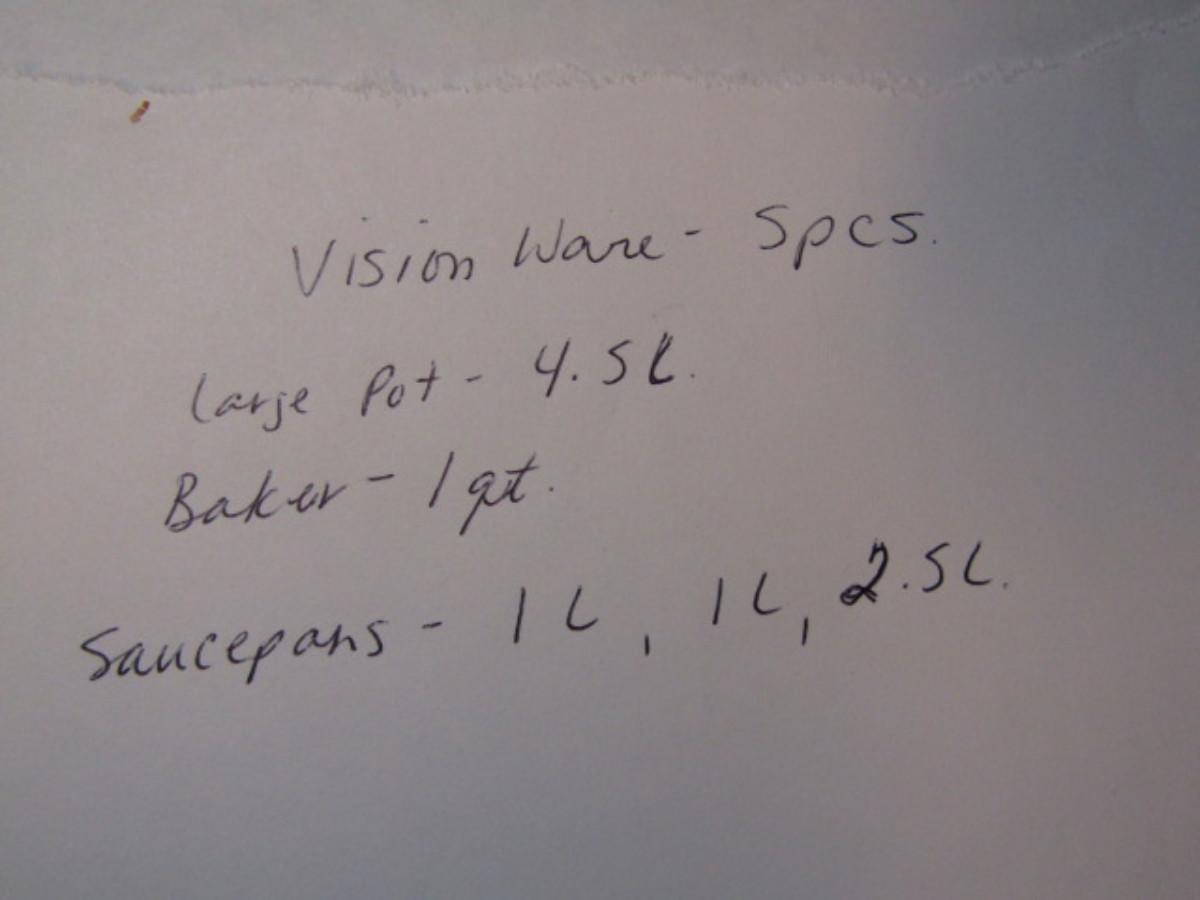 Vision Ware - 5pcs.
Large Pot - 4.5L.
Baker - 1qt.
Saucepans - 1L, 1L, 2.5L.